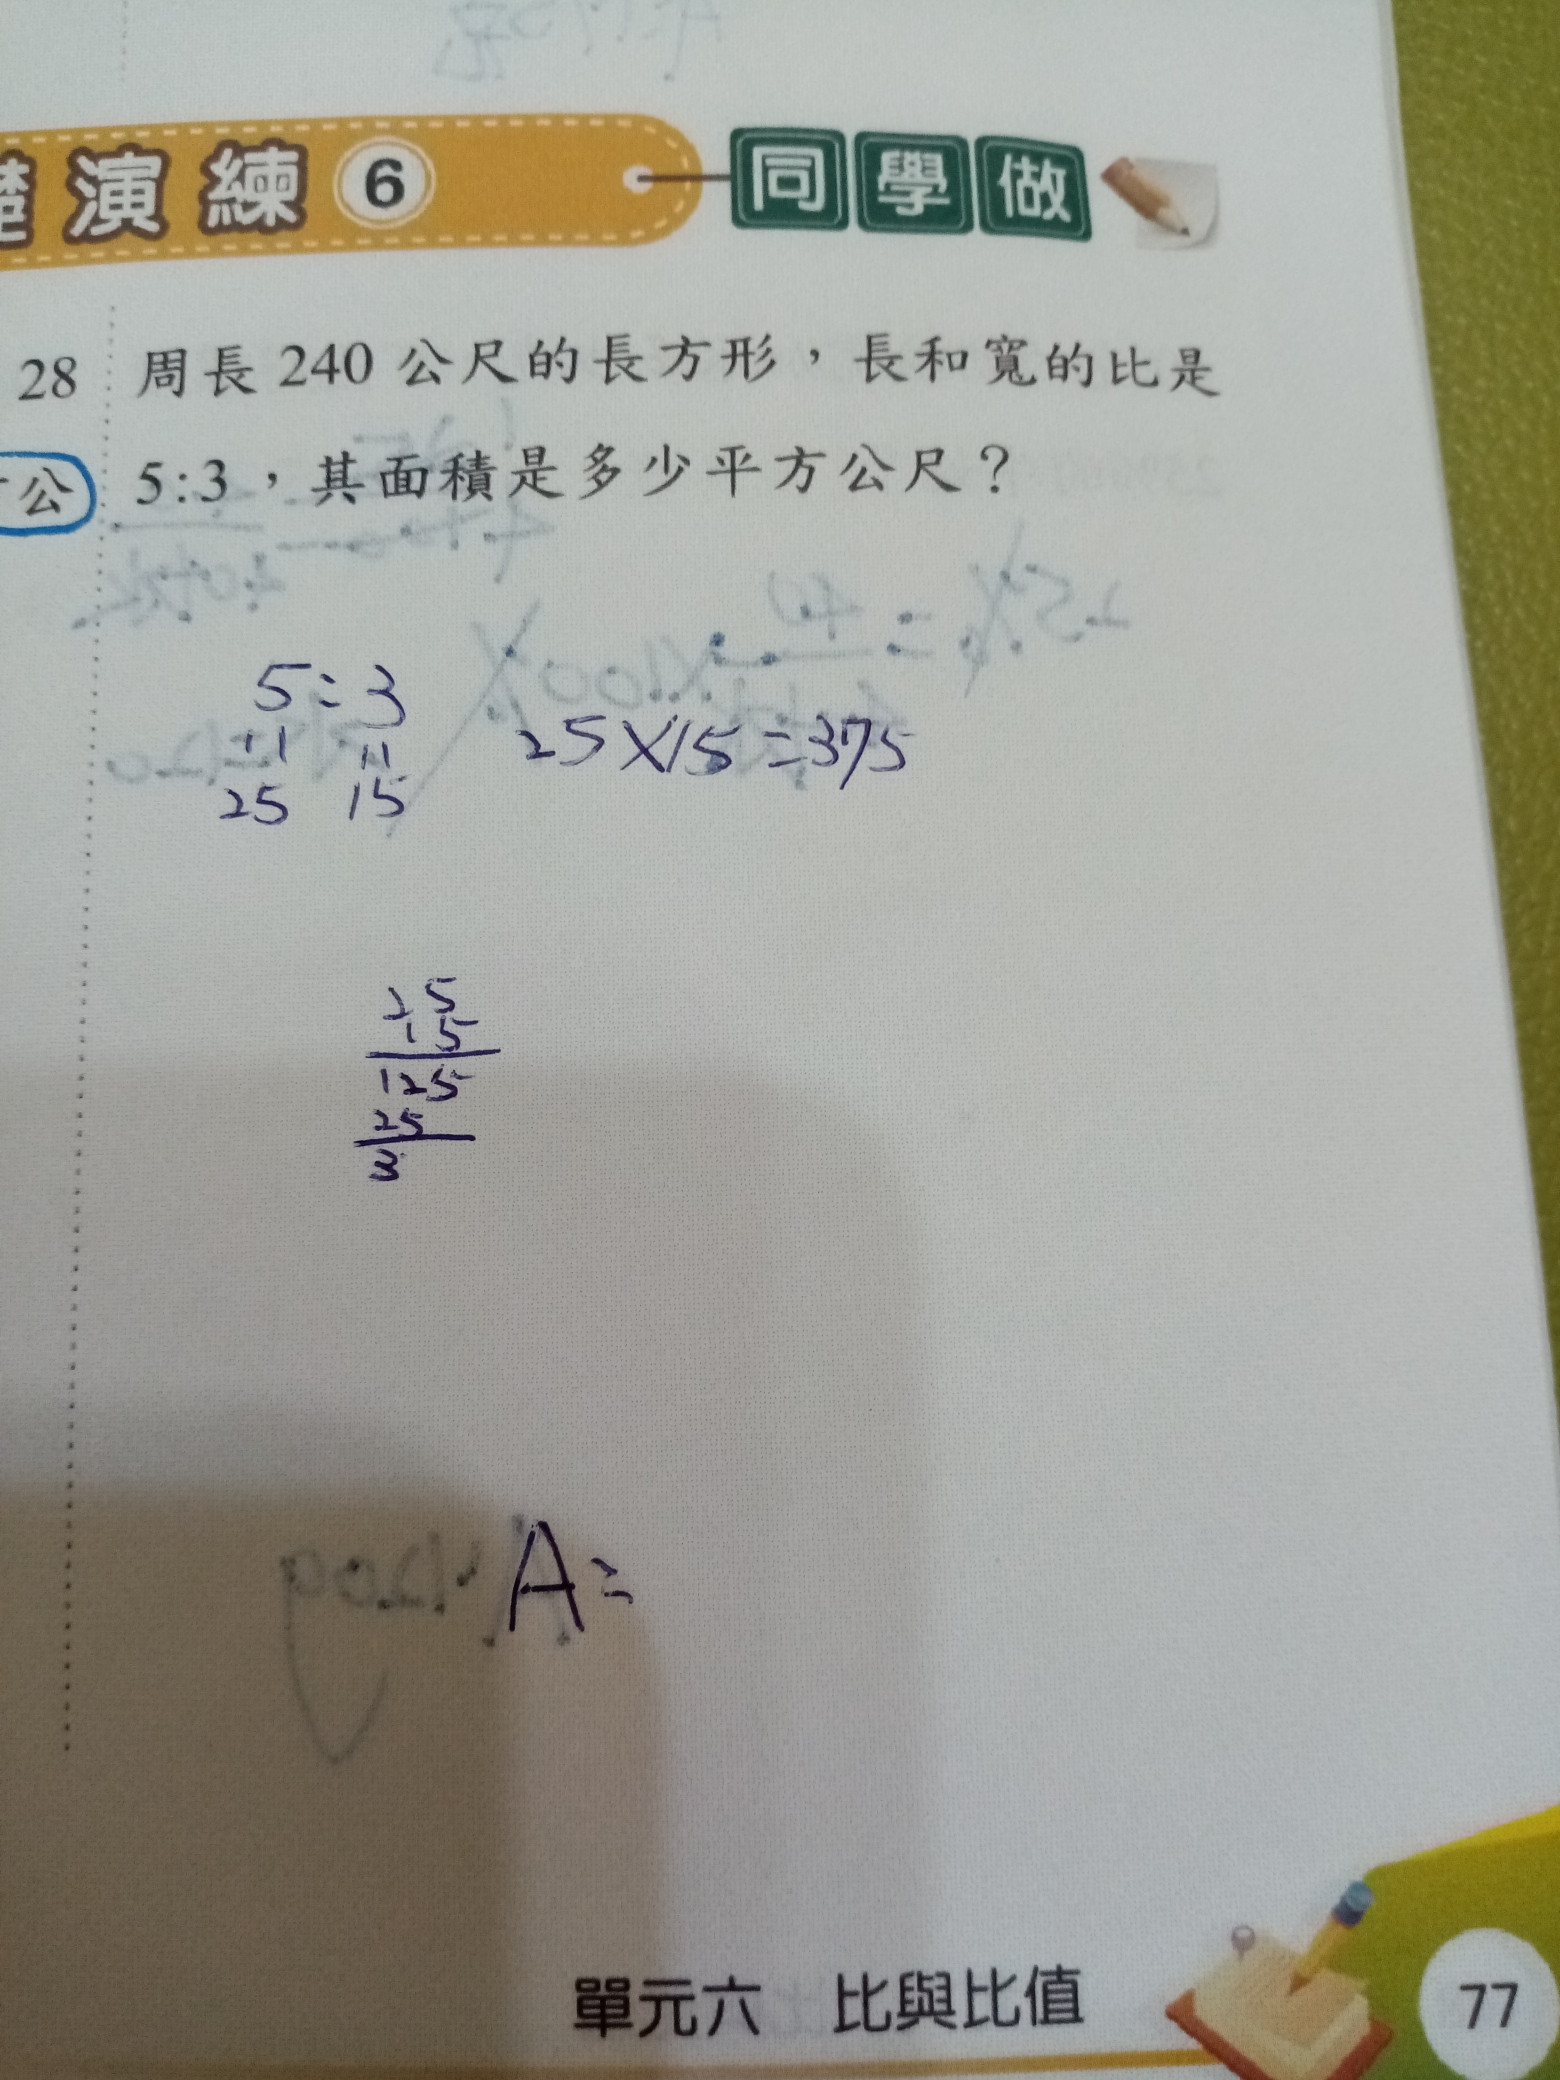 演練6 同學做
28 周長240公尺的長方形，長和寬的比是
公 5:3，其面積是多少平方公尺？
5:3
25 15
25×15=375
25
15
125
25
3
A=
單元六 比與比值 77